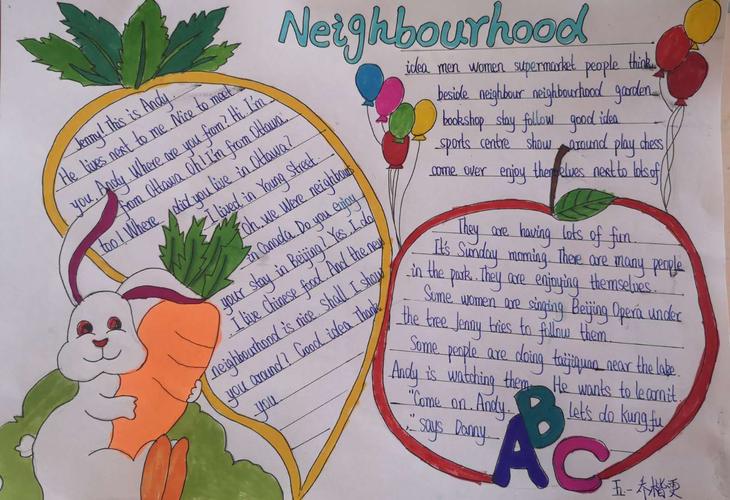 Neighbourhood
idea men women supermarket people think
beside neighbour neighbourhood garden
bookshop stay follow good idea
sports centre show around play chess
come over enjoy themselves next to lots of
Jenny! This is Andy
He lives next to me. Nice to meet
you Andy. Where are you from? Hi. I'm
from Ottawa. Oh! I'm from Ottawa.
too! Where did you live in Ottawa?
I lived in Young Street.
Oh, we were neighbours
in Canada. Do you enjoy
your stay in Beijing? Yes I do
I live Chinese food. And the new
neighbourhood is nice. shall I show
you around? Good idea thank
you
They are having lots of fun.
It's Sunday morning. There are many people
in the park. They are enjoying themselves.
Some women are singing Beijing Opera under
the tree Jenny tries to fullow them.
Some people are doing taijiquan near the lake.
Andy is watching them. He wants to learn it.
"Come on. Andy. Let's do kung fu
," says Danny
ABC
五一